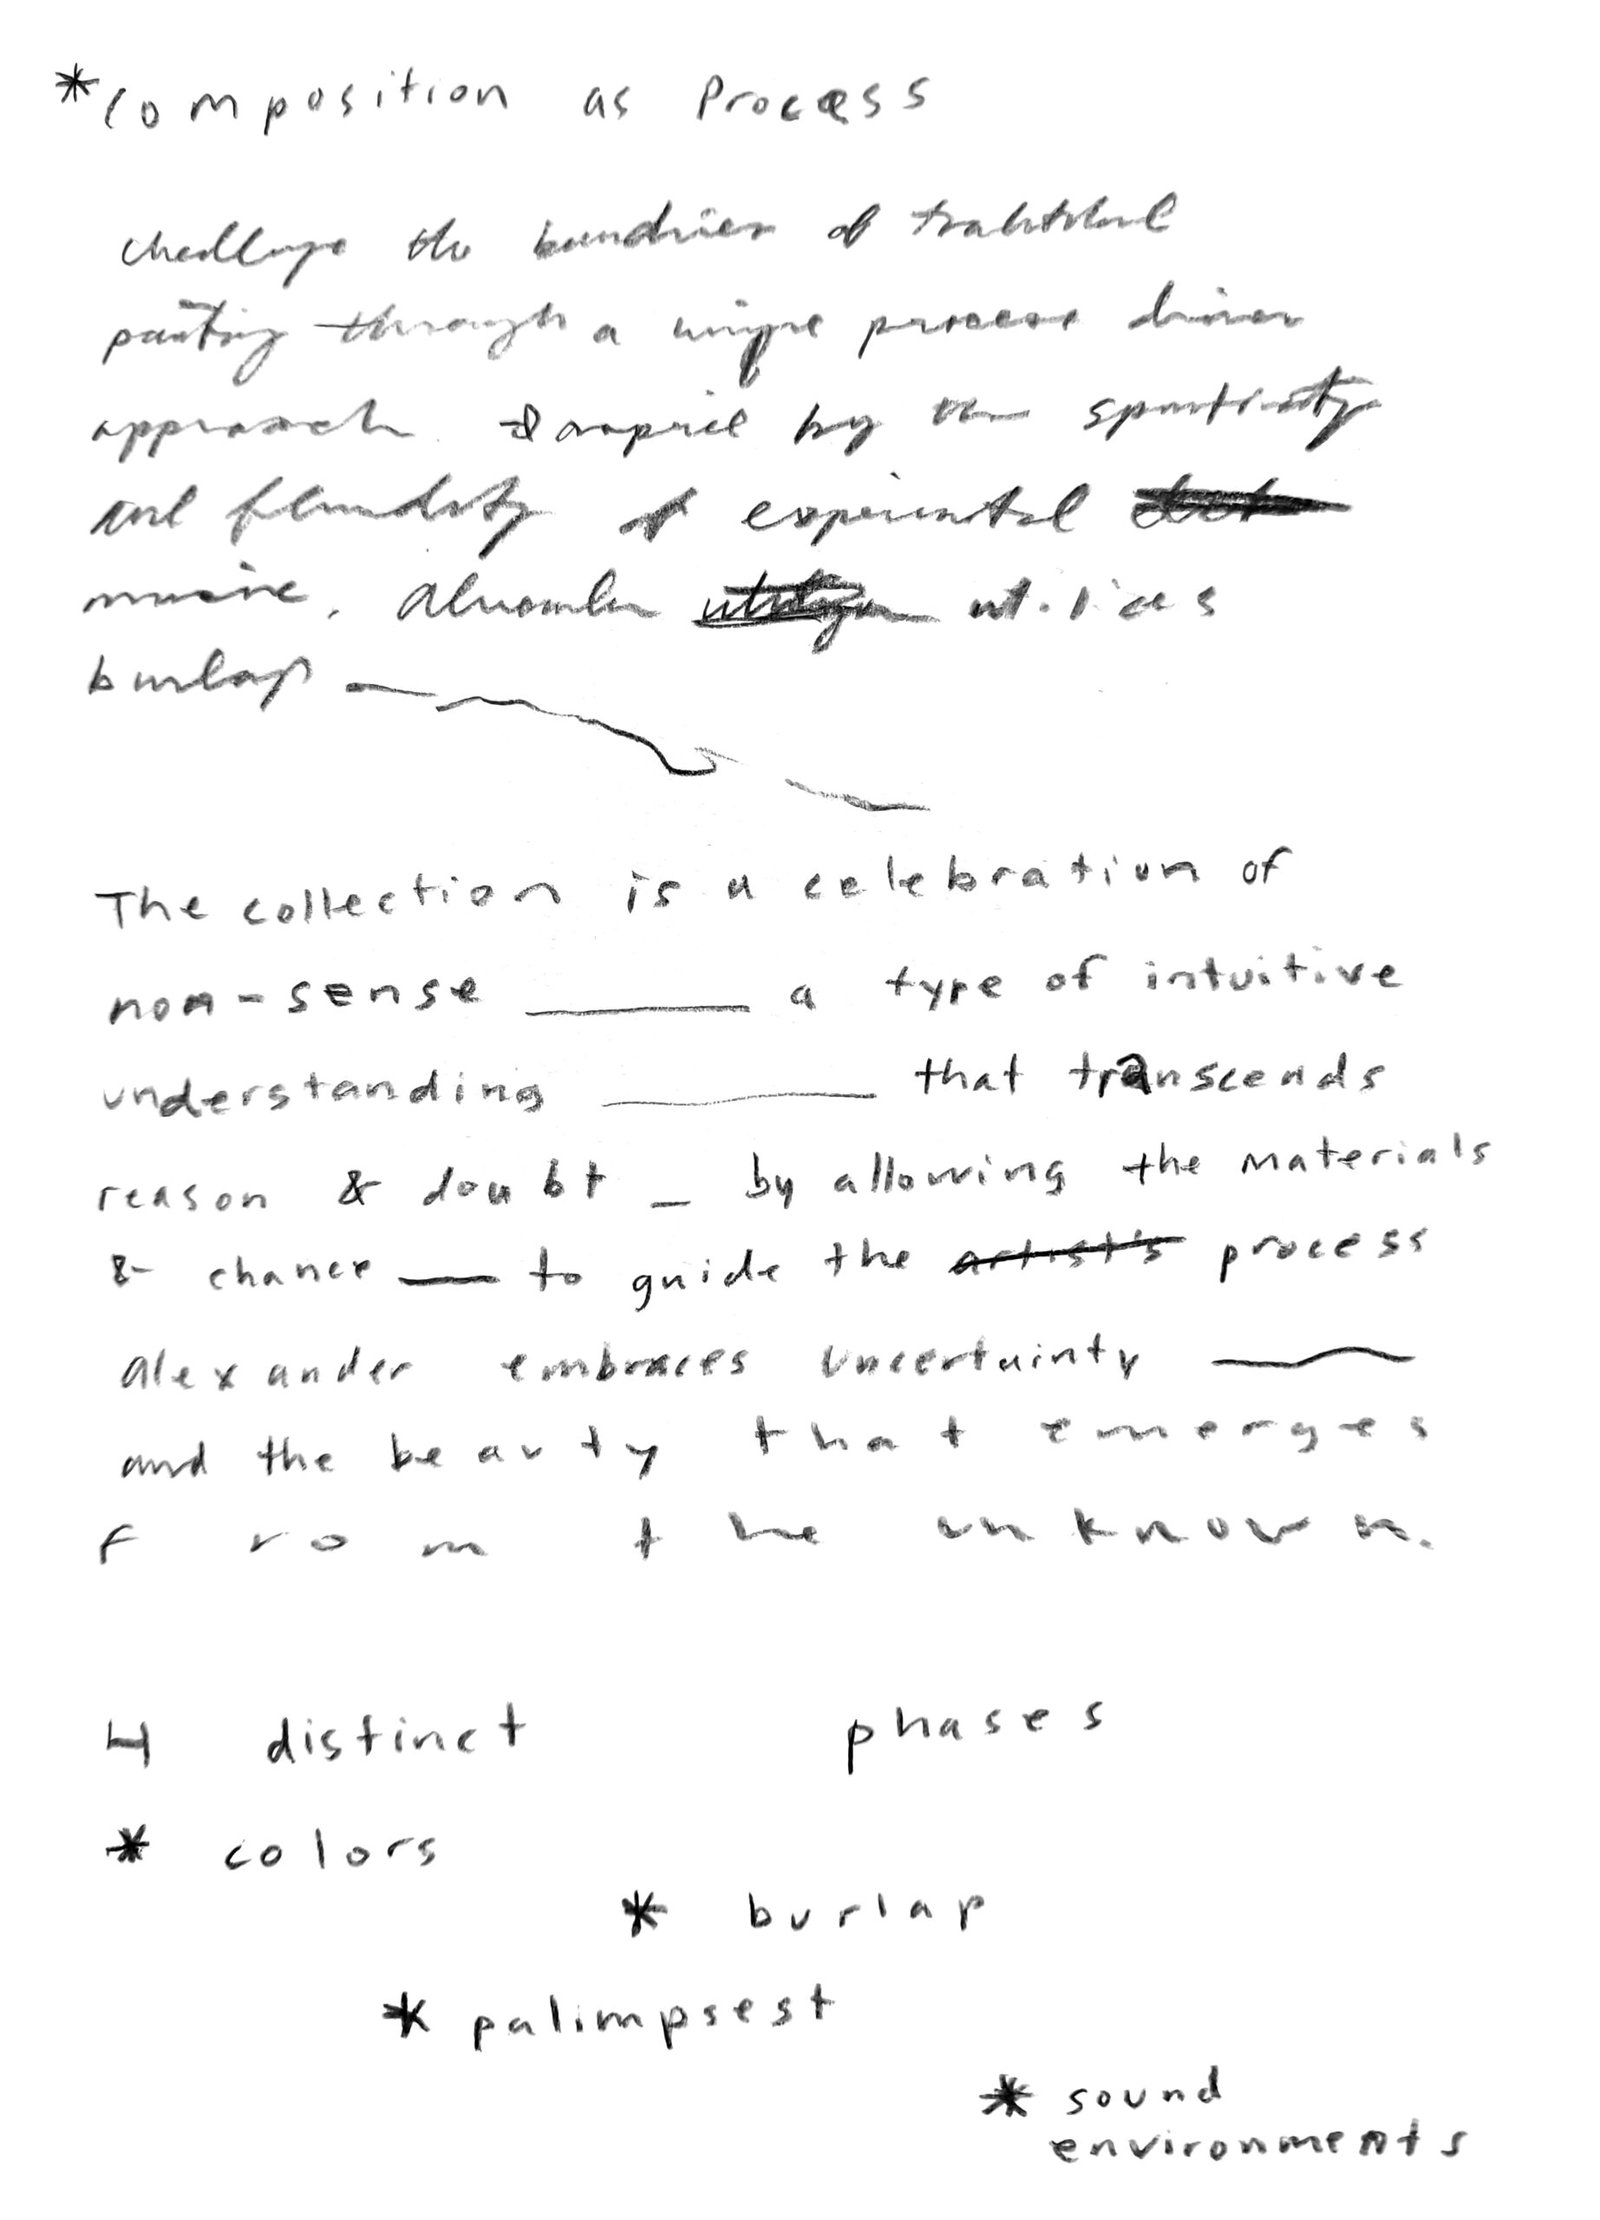 *Composition as Process
challenge the boundries of traditional
painting through a unique process driven
approach. Inspired by the spontineity
and fluidity of experimental
music. Alexander utilizes
burlap
The collection is a celebration of
non-sense ______ a type of intuitive
understanding ______ that transcends
reason & doubt _ by allowing the materials
& chance — to guide the artist's process
alexander embraces uncertainty ——
and the beauty that emerges
from the unknown.
4 distinct phases
* colors
* burlap
* palimpsest
* sound
environments